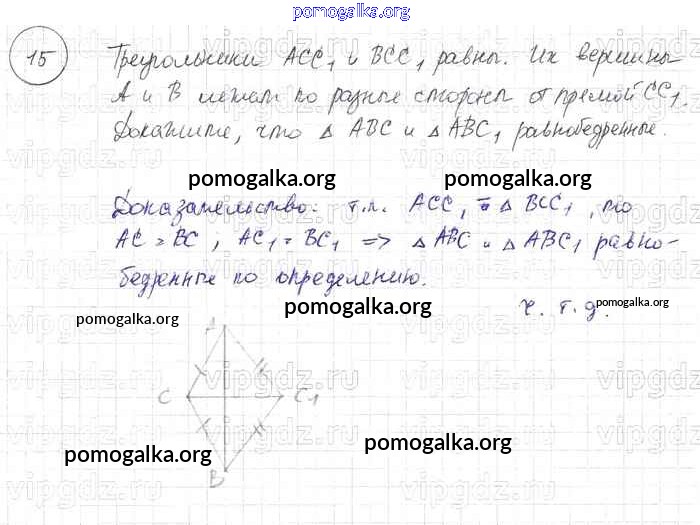 pomogalka.org
15 Треугольники ACC₁ и BCC₁ равны. Их вершины
A и B лежат по разные стороны от прямой CC₁.
Докажите, что △ ABC и △ ABC₁ равнобедренные.
pomogalka.org pomogalka.org
Доказательство: т.к. △ BCC₁, то
AC = BC, AC₁ = BC₁ => △ ABC и △ ABC₁ равно-
бедренные по определению.
ч. т. д.
pomogalka.org pomogalka.org pomogalka.org
A
C C₁
B
pomogalka.org pomogalka.org
vipgdz.ru